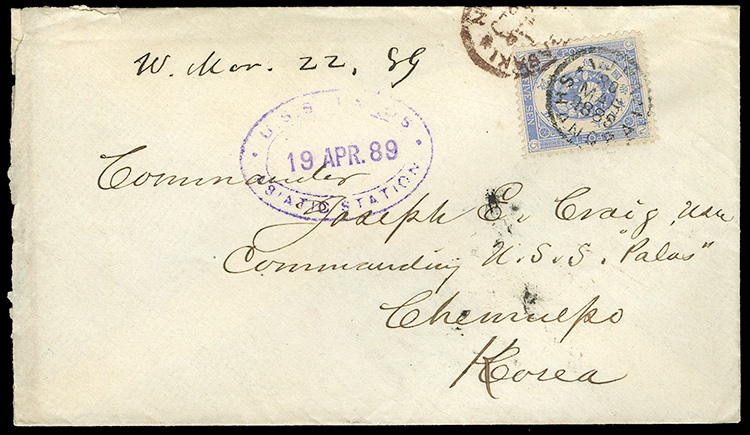 W. Mar. 22, 89
U.S.S.
19 APR. 89
ASIATIC STATION
Commander
Joseph E. Craig, USN
Commanding U.S.S. "Palos"
Chemulpo
Korea